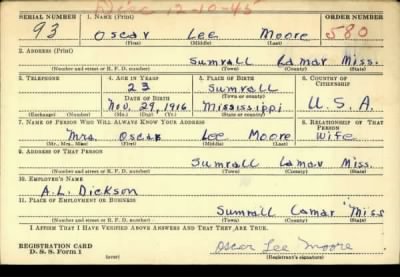 Disc 12-10-45
SERIAL NUMBER 1. NAME (Print) ORDER NUMBER
93 Oscar Lee Moore 580
(First) (Middle) (Last)
2. ADDRESS (Print)
Sumrall Lamar Miss.
(Number and street or R. F. D. number) (Town) (County) (State)
3. TELEPHONE 4. AGE IN YEARS 5. PLACE OF BIRTH 6. COUNTRY OF CITIZENSHIP
23 Sumrall
(Town or county)
DATE OF BIRTH
Nov. 29, 1916 Mississippi U.S.A.
(Exchange) (Number) (Mo.) (Day) (Yr.) (State or country)
7. NAME OF PERSON WHO WILL ALWAYS KNOW YOUR ADDRESS 8. RELATIONSHIP OF THAT PERSON
Mrs. Oscar Lee Moore Wife
(Mr., Mrs., Miss) (First) (Middle) (Last)
9. ADDRESS OF THAT PERSON
Sumrall Lamar Miss.
(Number and street or R. F. D. number) (Town) (County) (State)
10. EMPLOYER'S NAME
A.L. Dickson
11. PLACE OF EMPLOYMENT OR BUSINESS
Sumrall Lamar Miss
(Number and street or R. F. D. number) (Town) (County) (State)
I AFFIRM THAT I HAVE VERIFIED ABOVE ANSWERS AND THAT THEY ARE TRUE.
REGISTRATION CARD
D. S. S. Form 1 Oscar Lee Moore
(over) (Registrant's signature)